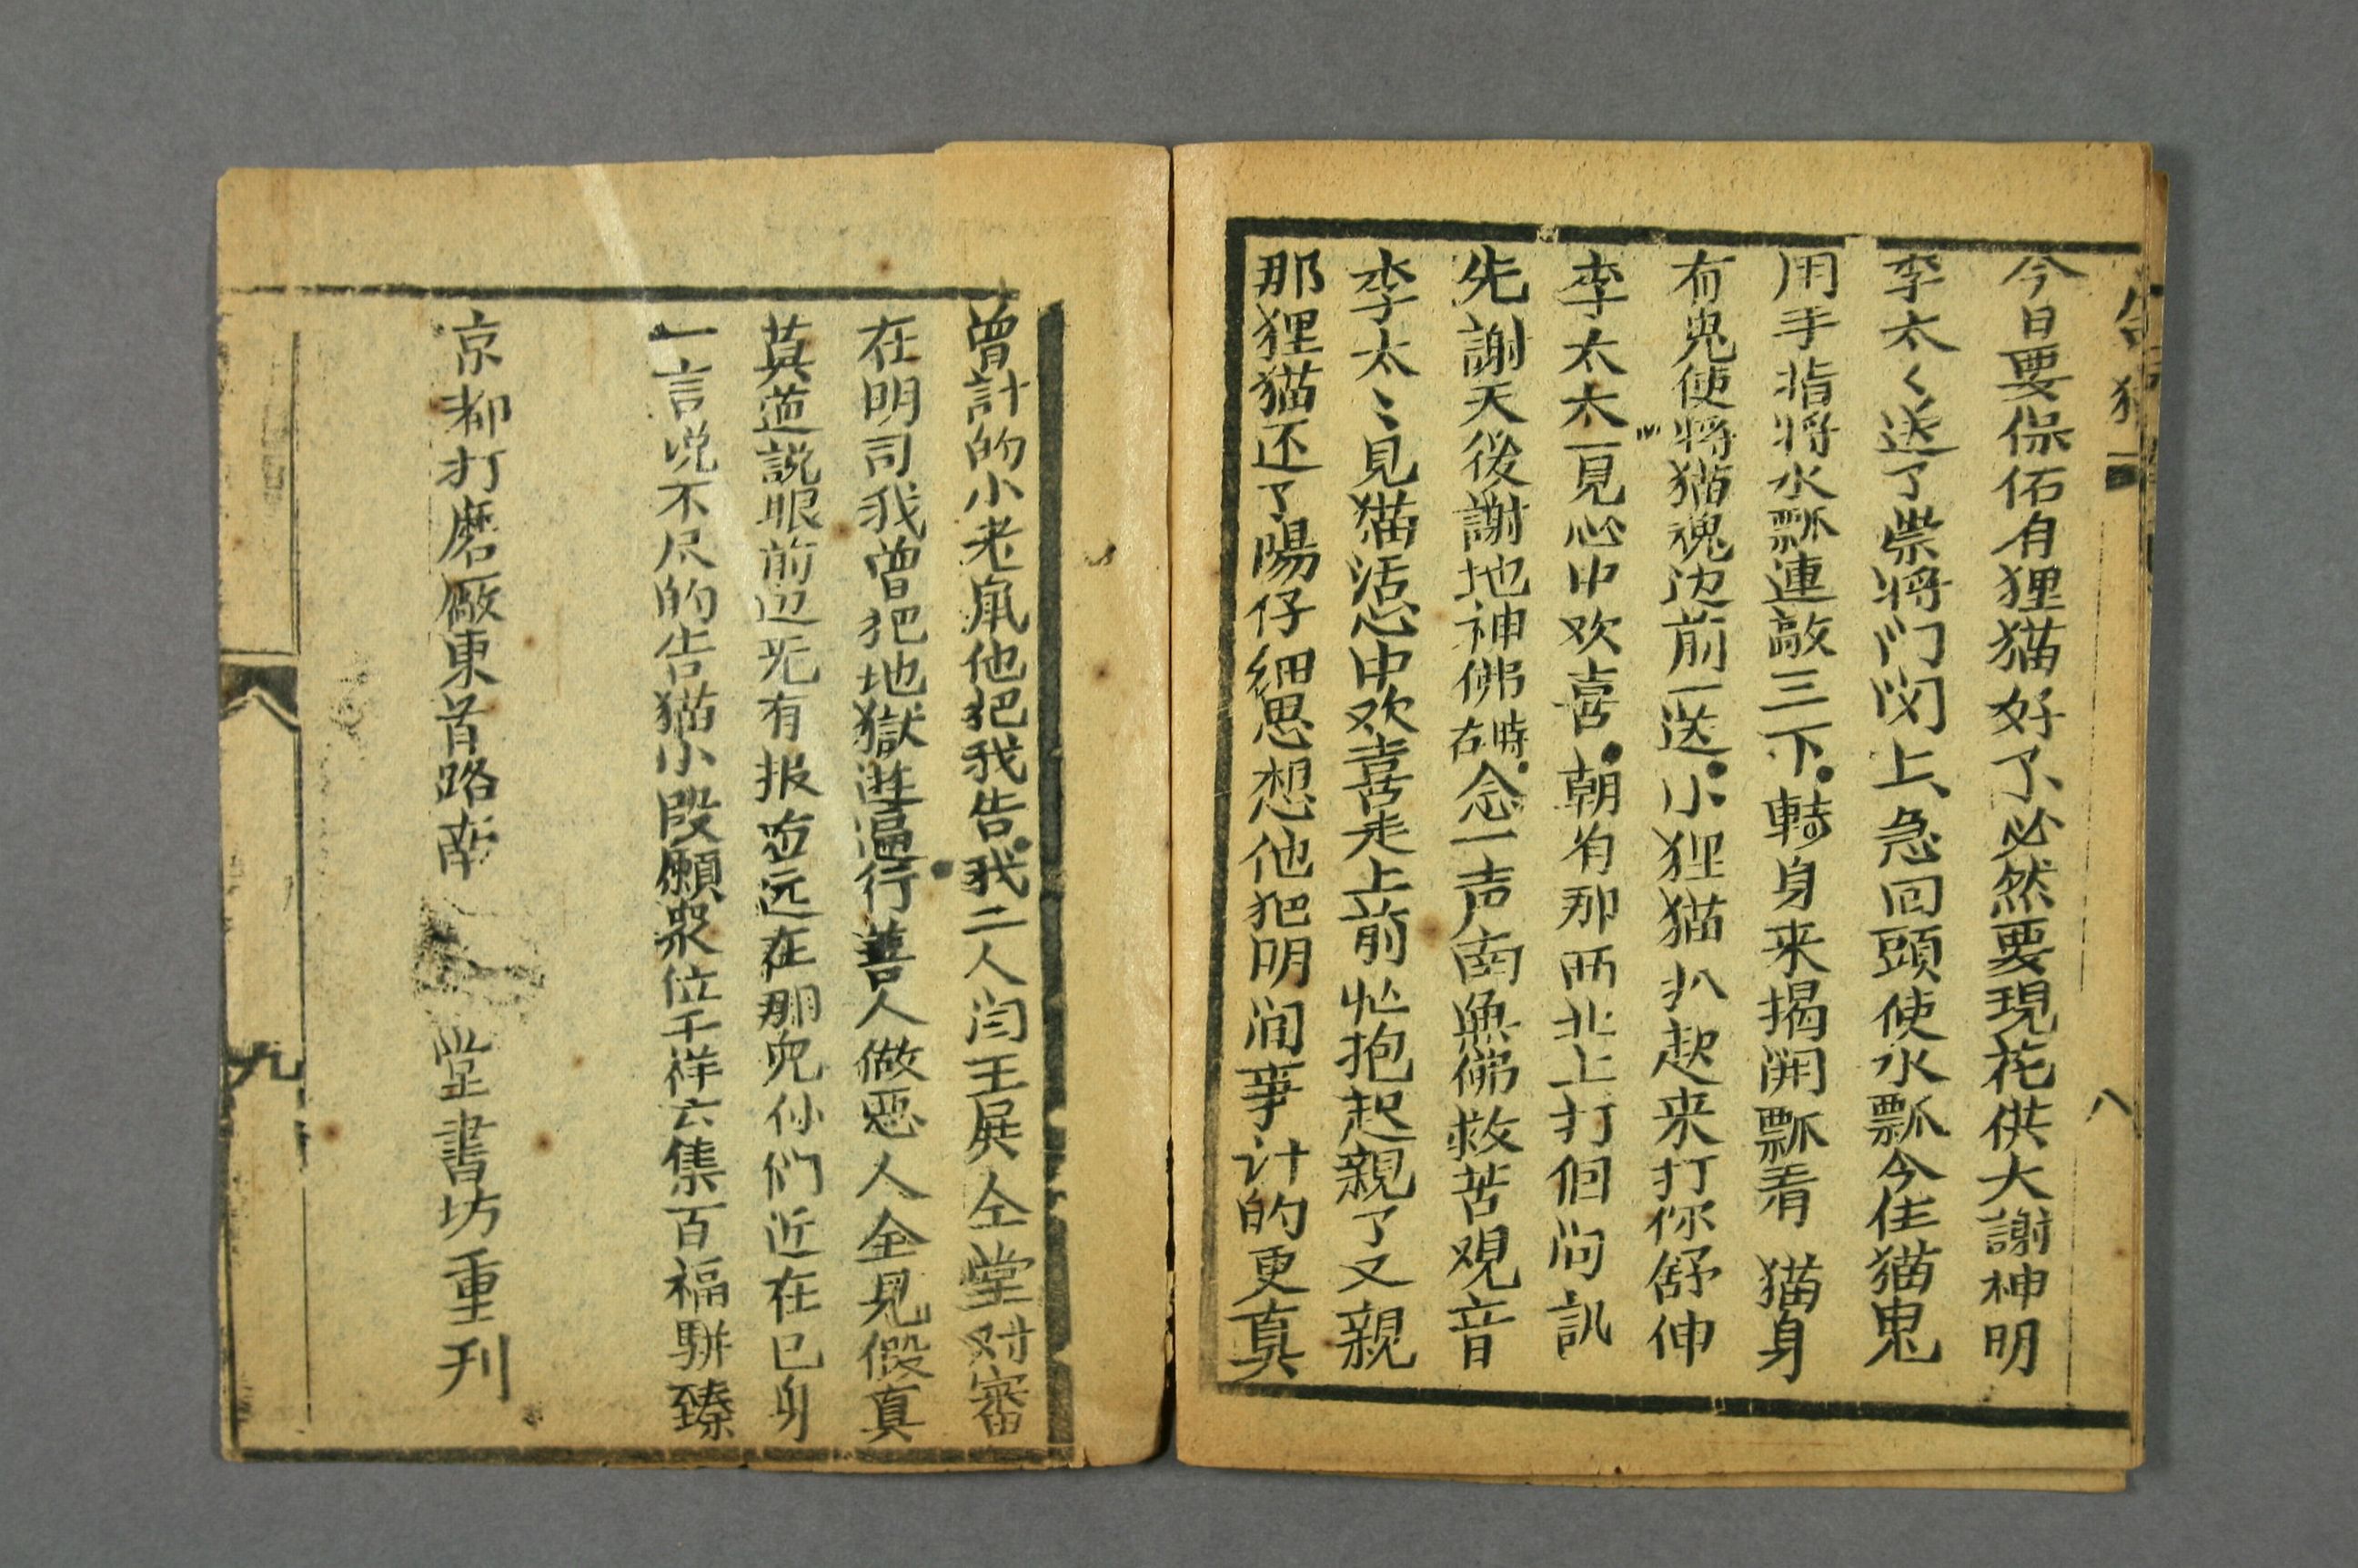 今日要保佑有狸猫好了必然要現花供大謝神明
李太く送了祟将门関上急回頭使水瓢今住猫鬼
用手指将水瓢連敲三下轉身来揭開瓢看猫身
有鬼使将猫魂边前一送小狸猫扒起来打你舒伸
李太太一見心中欢喜朝有那西北上打個问訊
先謝天後謝地神佛在時念一声南無佛救苦观音
李太〻見猫活心中欢喜走上前忙抱起親了又親
那狸猫还了陽仔細思想他把明间事计的更真
八
曾計的小老鼠他把我告我二人闫王展仝堂对審
在明司我曾把地獄遊逼行善人做恶人全見假真
莫道説眼前边无有报应远在那兒你們近在已身
一言说不尽的告猫小段願衆位千祥云集百福駢臻
京都打磨厰東首路南
堂書坊重刊
九